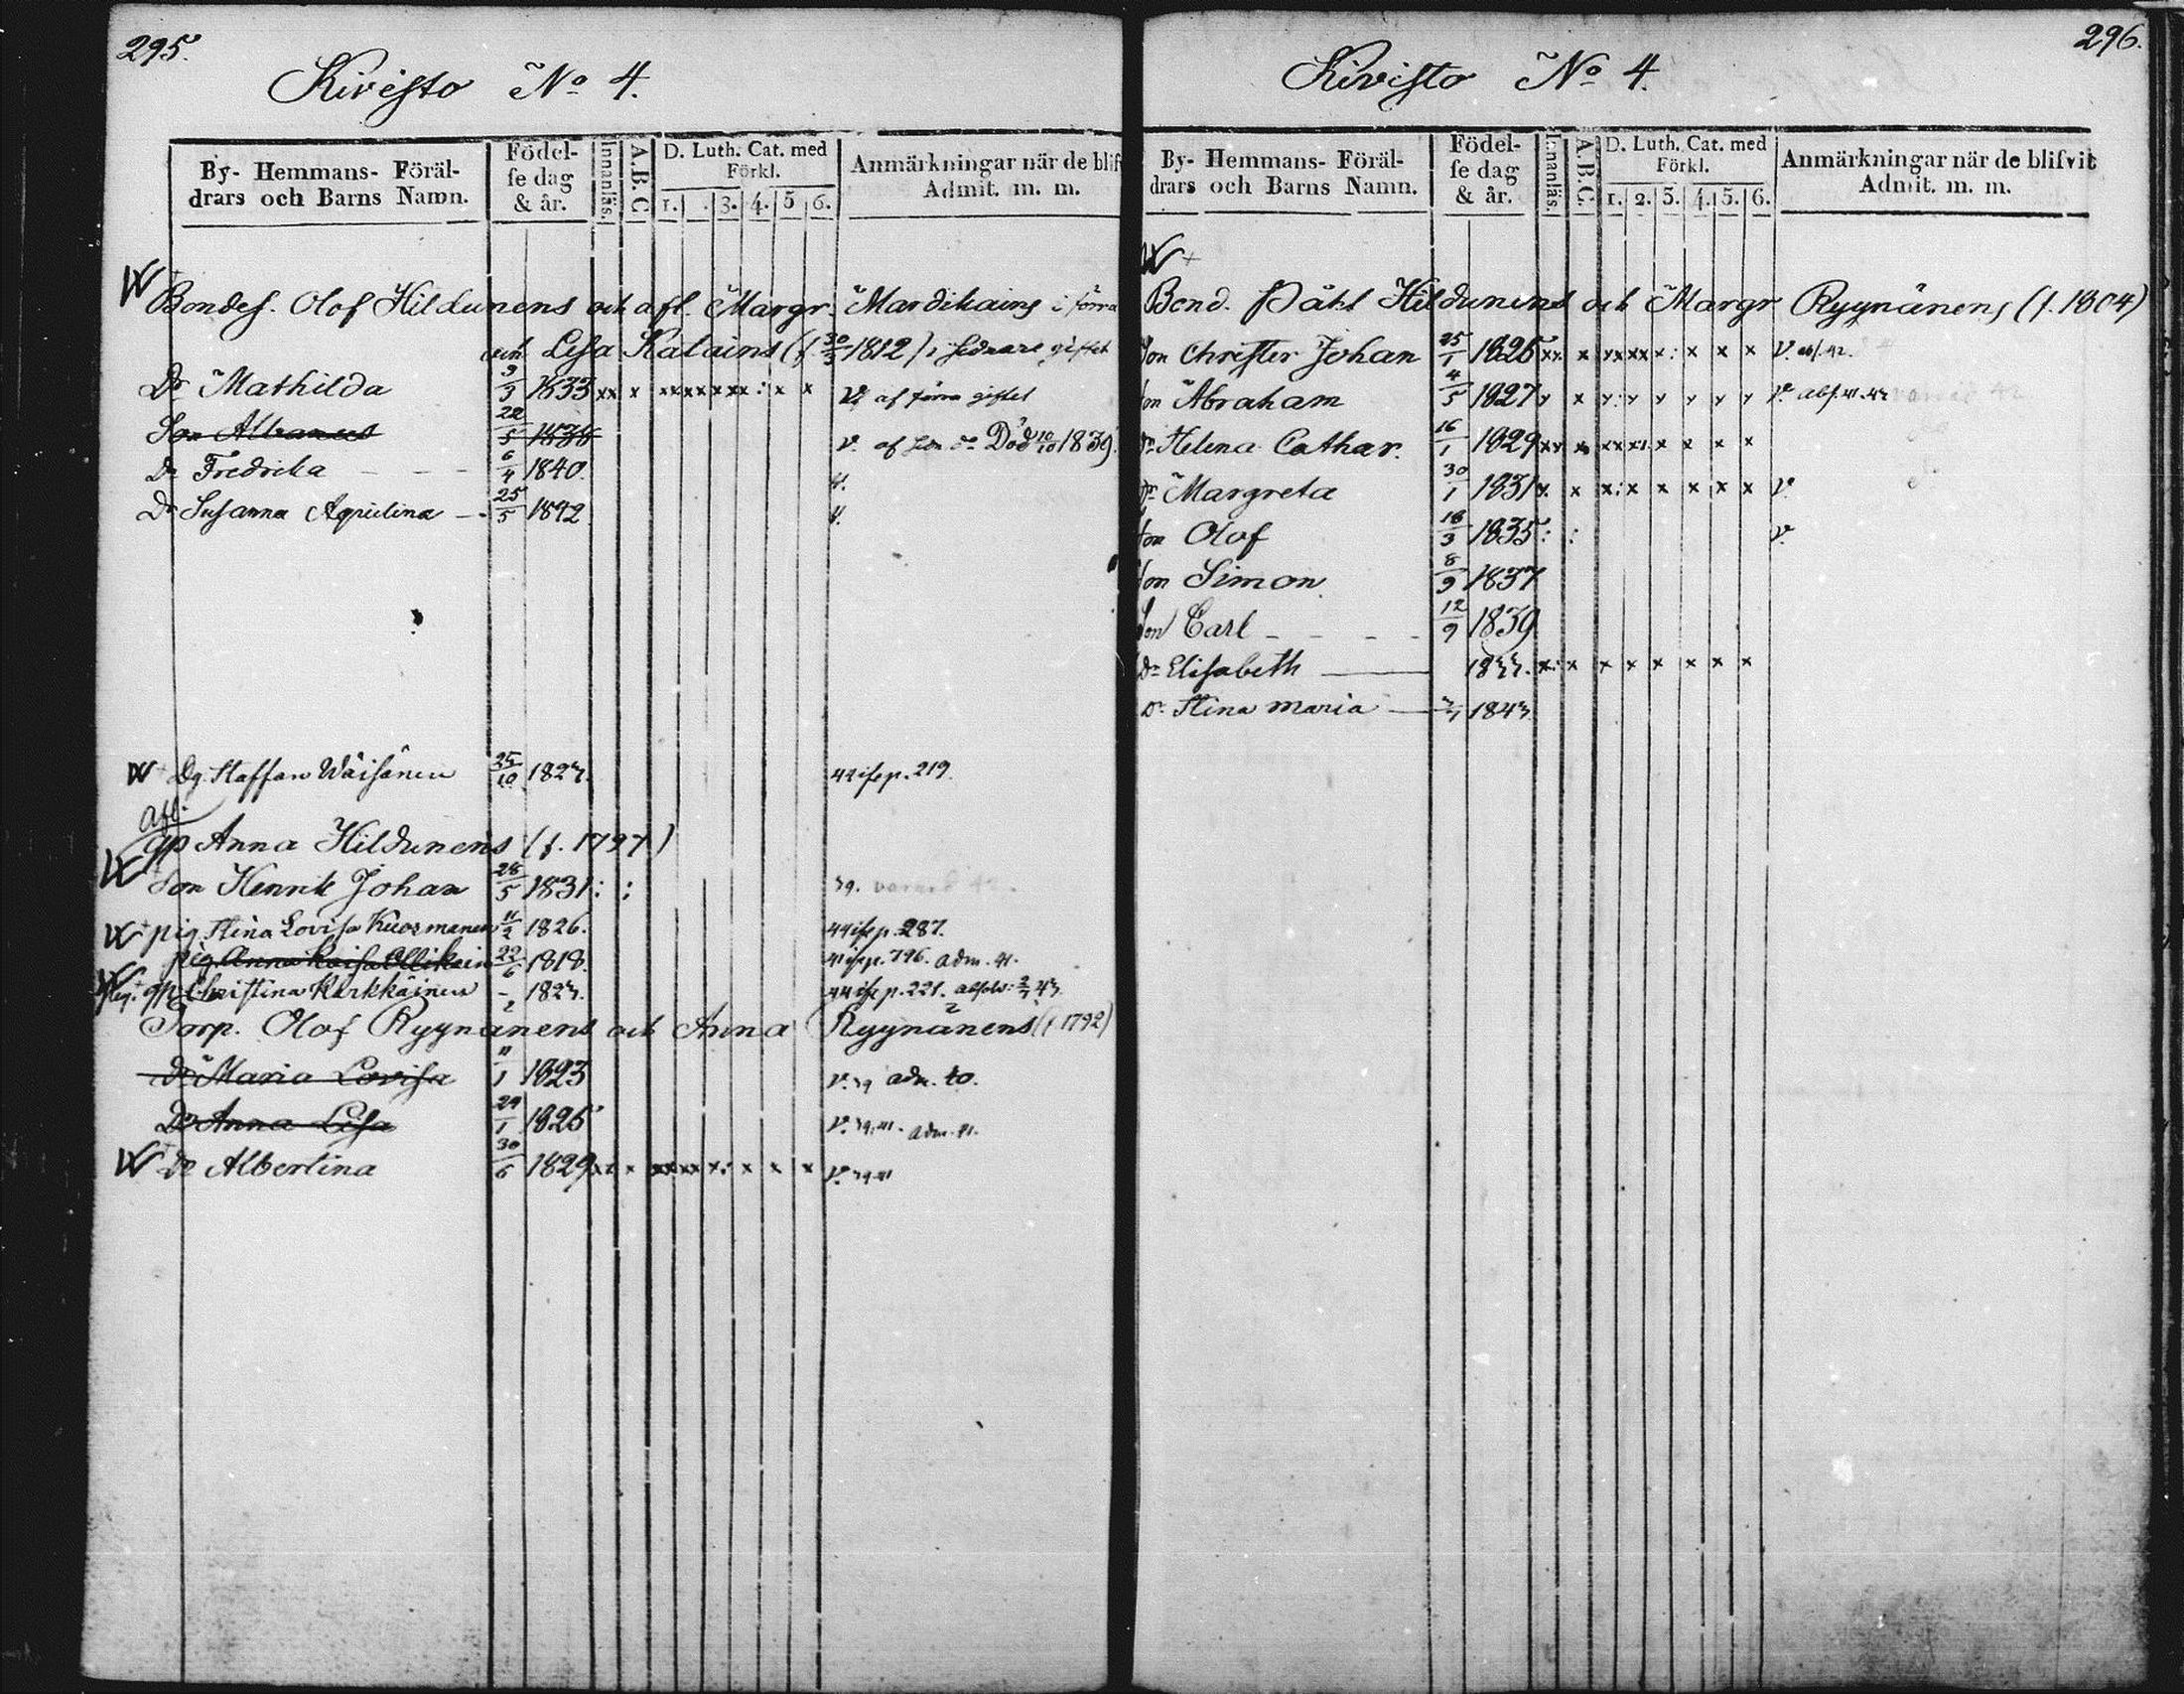 295.
Kivisto No 4.
By- Hemmans- Föräl-
drars och Barns Namn.
Födel-
se dag
& år.
Innanläs.
A.B.C
D. Luth. Cat. med
Förkl.
1. . 3. 4. 5 6.
Anmärkningar när de blif
Admit. m. m.
Bondes. Olof Hildunens och afl. Margr. Mardikains i förra
och Lesa Kalains (f. 30/3 1812) i sednare giftet
Dr Mathilda 3/3 1833 xx x xx xx xx x : x x V. af förra giftet
Son 22/5 1838 v. af sen. do Död 10/10 1839.
Dr Fredrika - - - 6/4 1840. v.
Dr Susanna Aqvilina - 25/5 1842 v.
Dg. Staffan Wäisänen 25/10 182 44 ifs p. 219.
afl.
gp Anna Hildunens (f. 1797)
Son Henrik Johan 28/5 1831 : : 39.
pig. Stina Lovisa Kuosmanen 11/2 1826. 44 ifs p. 287.
pig Anna Kaisa Ollikain 22/6 1818. 41 ifs p. 796. adm. 41.
gp. Christina Karkkäinen 182 44 ifs p. 221. absolv: 43.
Torp. Olof Ryynänens och Anna Ryynänens (f 1792)
dr Maria Lovisa 11/1 1823 v. 39 adm. 40.
Dr Anna Lisa 29/1 1825 v. 39. 41. adm. 41.
Dr Albertina 30/6 1829 xx x xx xx x: x x x v. 39 41
296.
Kivisto No 4.
By- Hemmans- Föräl-
drars och Barns Namn.
Födel-
se dag
& år.
Innanläs.
A.B.C.
D. Luth. Cat. med
Förkl.
1. 2. 3. 4. 5. 6.
Anmärkningar när de blifvit
Admit. m. m.
Bond. Påhl Hildunens och Margr Ryynänens (f. 1804)
Son Christer Johan 25/1 1825 xx x xx xx x: x x x V. abs. 42.
Son Abraham 4/5 1827 x x x: x x x x x v. abs. 41. 42
Dr Helena Cathar. 16/1 1829 xx x xx xx x x x x
Dr Margreta 30/1 1831 x. x x: x x x x x v.
Son Olof 18/3 1835 : : v.
Son Simon 8/9 1837
Son Carl - - - - 12/9 1839
Dr Elisabeth 1833. x: x x x x x x x
Dr Stina Maria 1843.